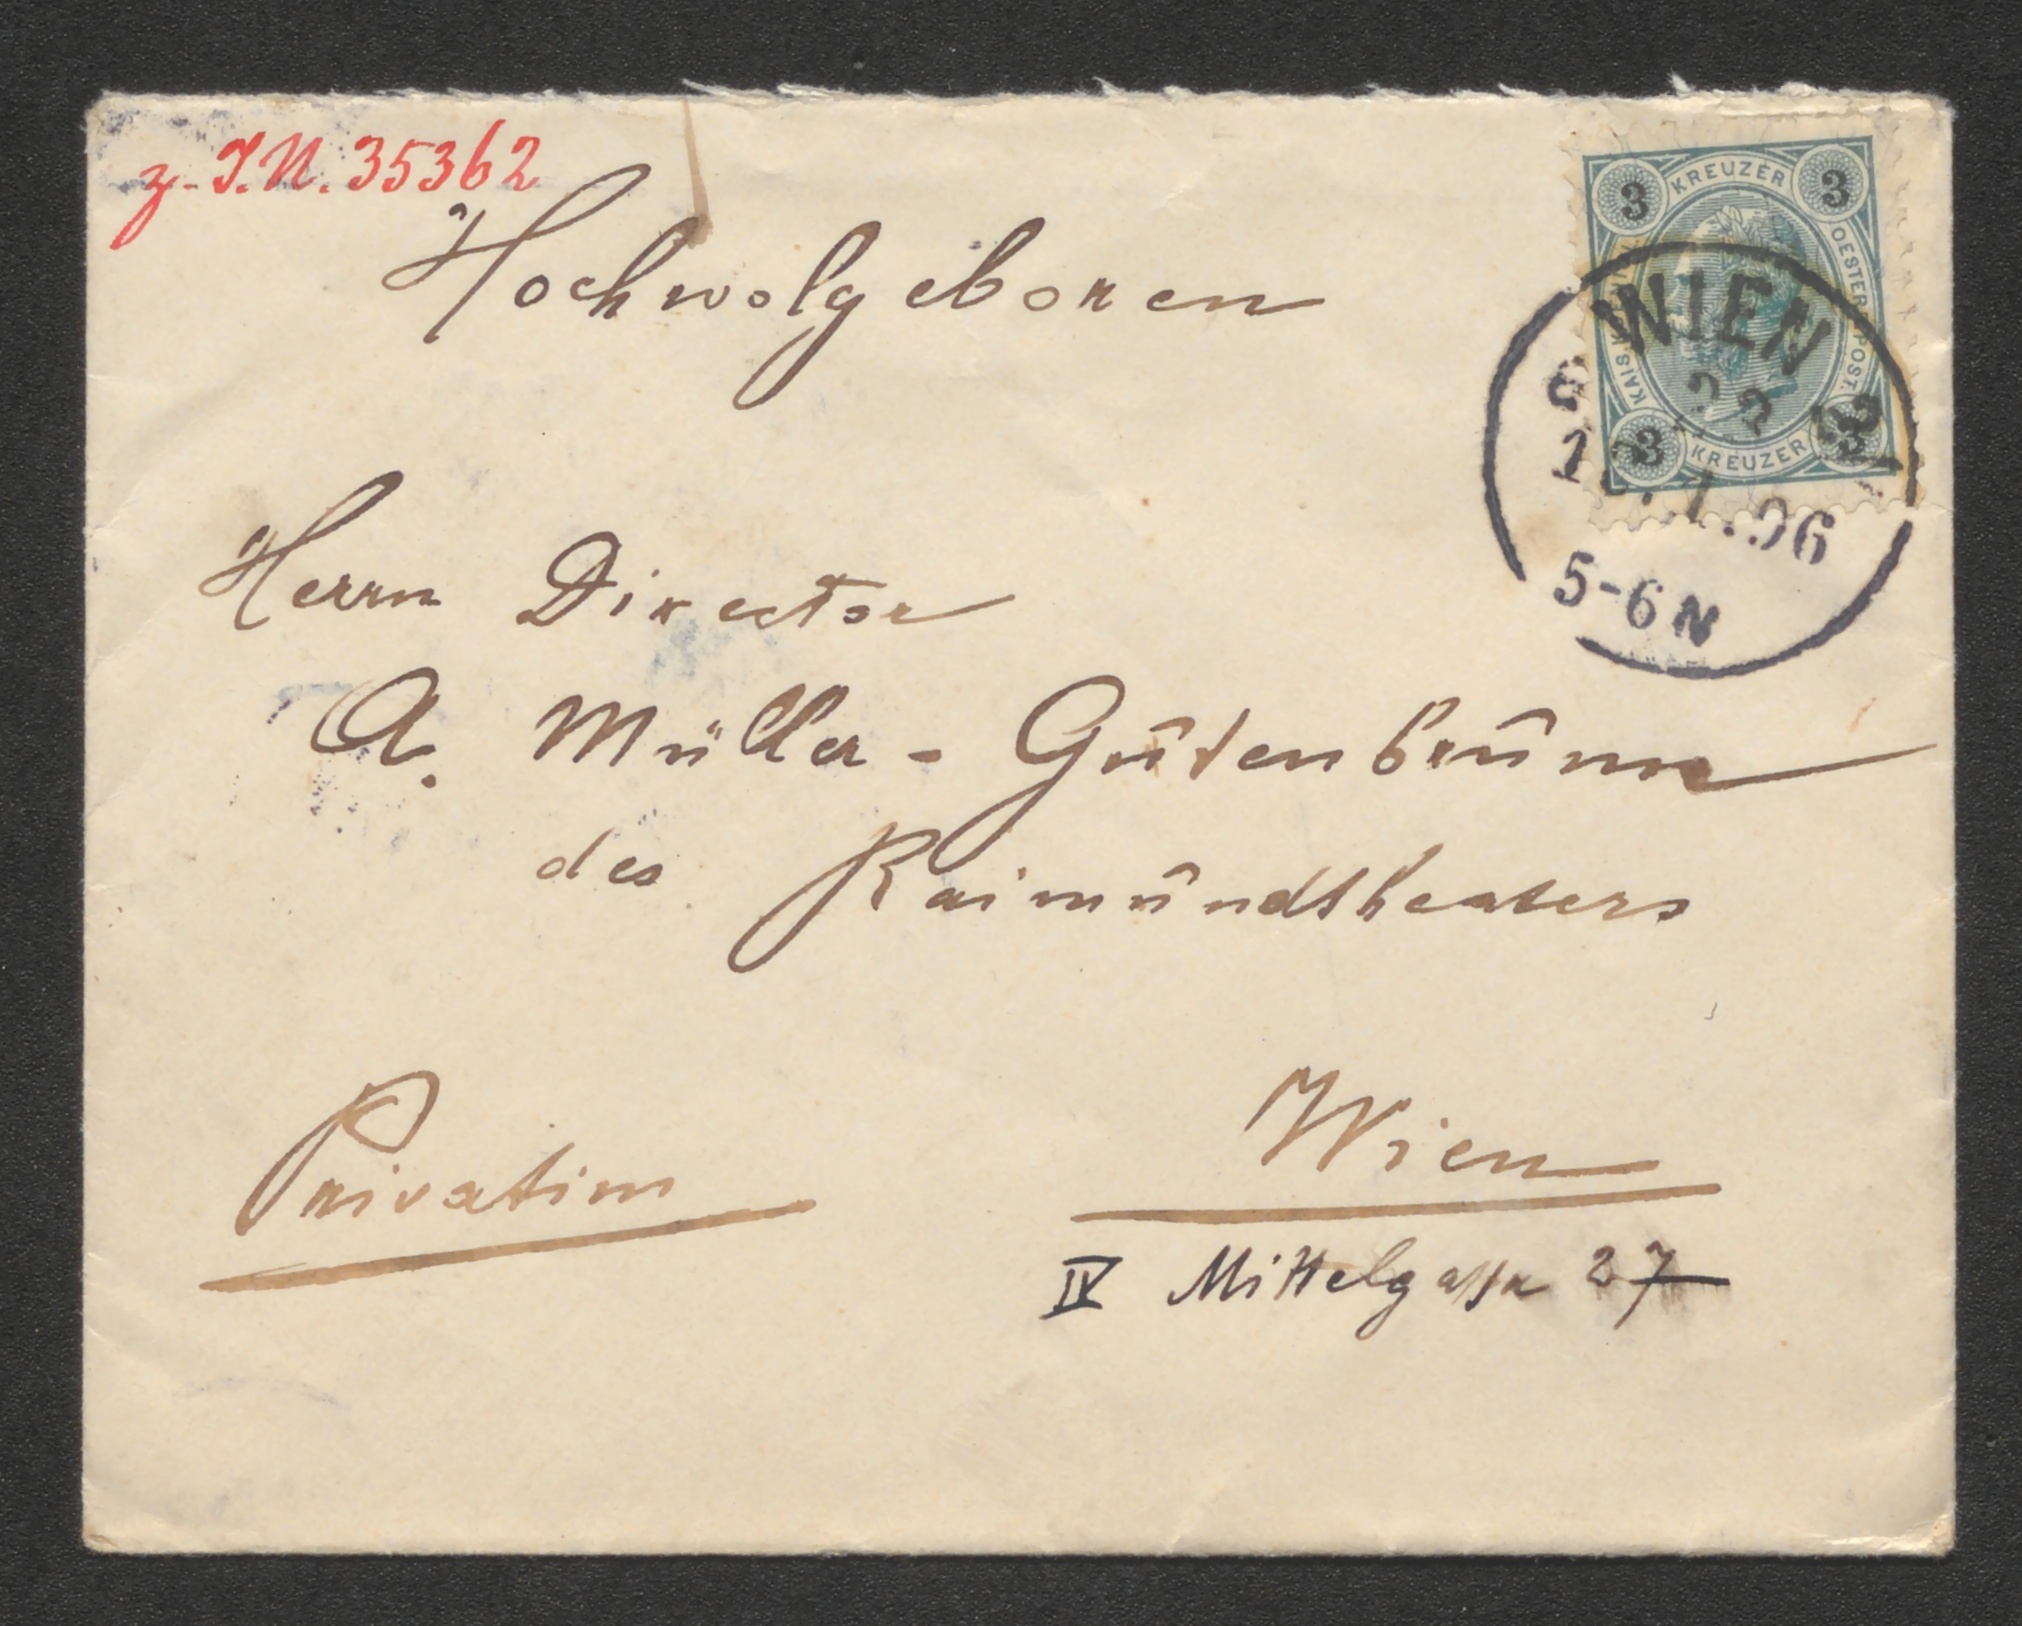 z. I.N. 35362
Hochwolgeboren
3 KREUZER 3
OESTERR. POST.
3 KREUZER 3
WIEN
.1.96
5-6N
Herrn Director
A. Müller-Gutenbrunn
des Raimundtheaters
Privatim
Wien
IV Mittelgasse 27